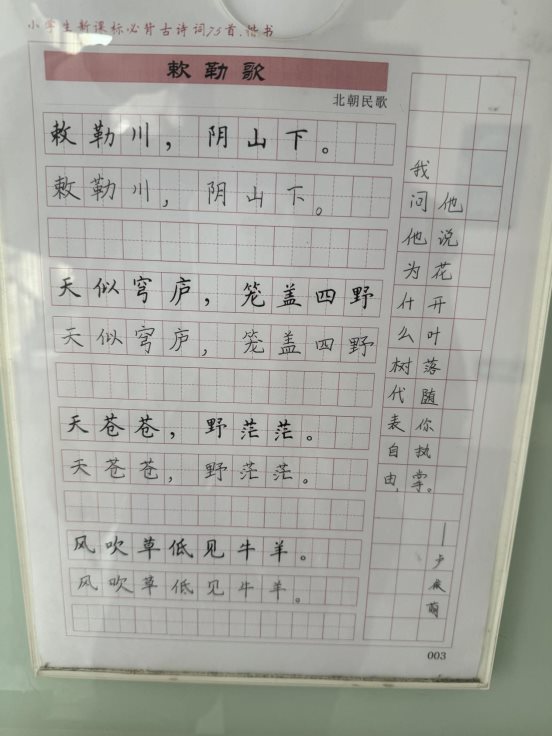 小学生新课标必背古诗词75首.楷书
敕勒歌
北朝民歌
敕勒川，阴山下。
敕勒川，阴山下。
天似穹庐，笼盖四野
天似穹庐，笼盖四野
天苍苍，野茫茫。
天苍苍，野茫茫。
风吹草低见牛羊。
风吹草低见牛羊。
我问他为什么树代表自由，
他说花开叶落随你执掌。
——卢
003